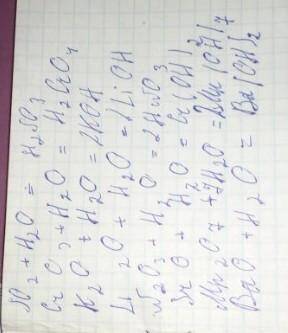 SO2 + H2O = H2SO3
CrO3 + H2O = H2CrO4
K2O + H2O = 2KOH
Li2O + H2O = 2LiOH
N2O3 + H2O = 2HNO3
SrO + H2O = Sr(OH)2
Mn2O7 + 7H2O = 2Mn(OH)7
BaO + H2O = Ba(OH)2